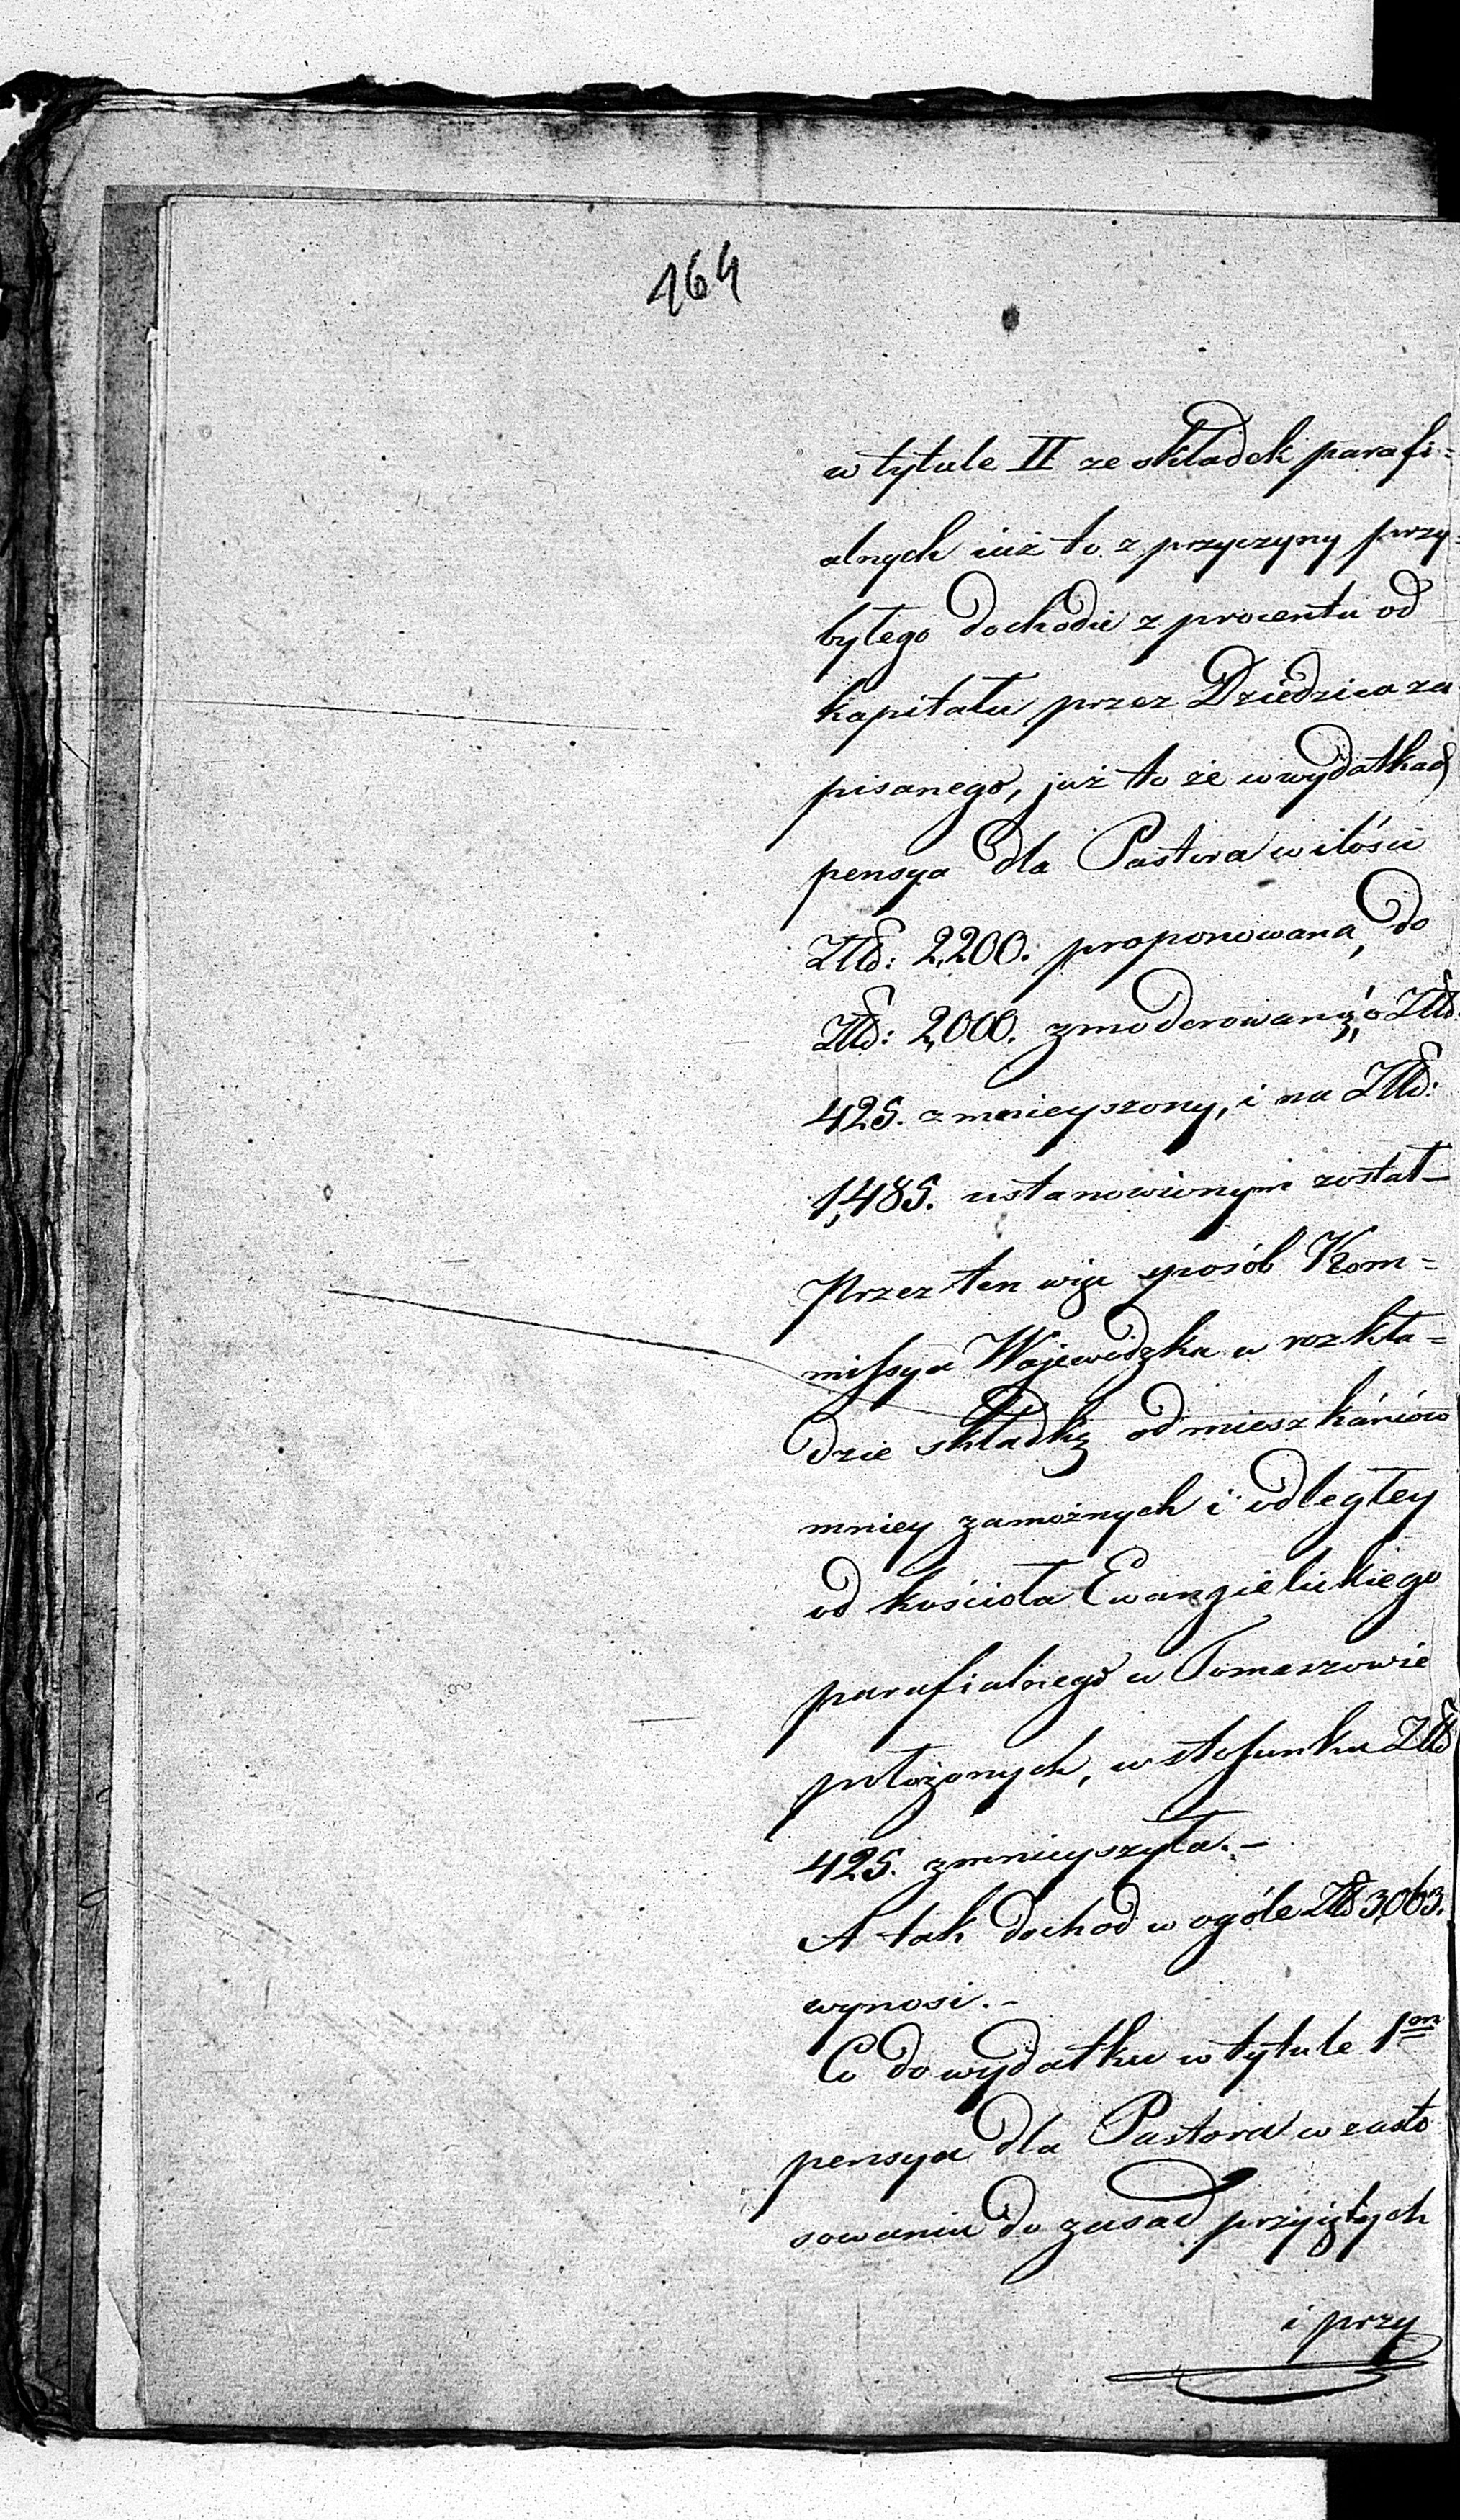 164
w tytule II ze składek parafi=
alnych iuż to z przyczyny przy=
byłego dochodu z procentu od
kapitału przez Dziedzica za
pisanego, już to że w wydatkach
pensya dla Pastora w ilości
Złb: 2,200. proponowana, do
Złb: 2,000. zmoderowaną, o Złb:
425. zmnieyszony, i na Złb:
1,485. ustanowionym został –
Przez ten więc sposób Kom=
missya Wojewódzka w rozkła=
dzie składkę od mieszkańców
mniey zamożnych i odległey
od kościoła Ewangielickiego
parafialnego w Tomaszowie
położonych, w stosunku Złb
425. zmnieyszyła. –
A tak dochod w ogóle Złb 3,063.
wynosi. –
Co do wydatku w tytule 1m
pensya dla Pastora w zasto
sowaniu do zasad przyiętych
i przy